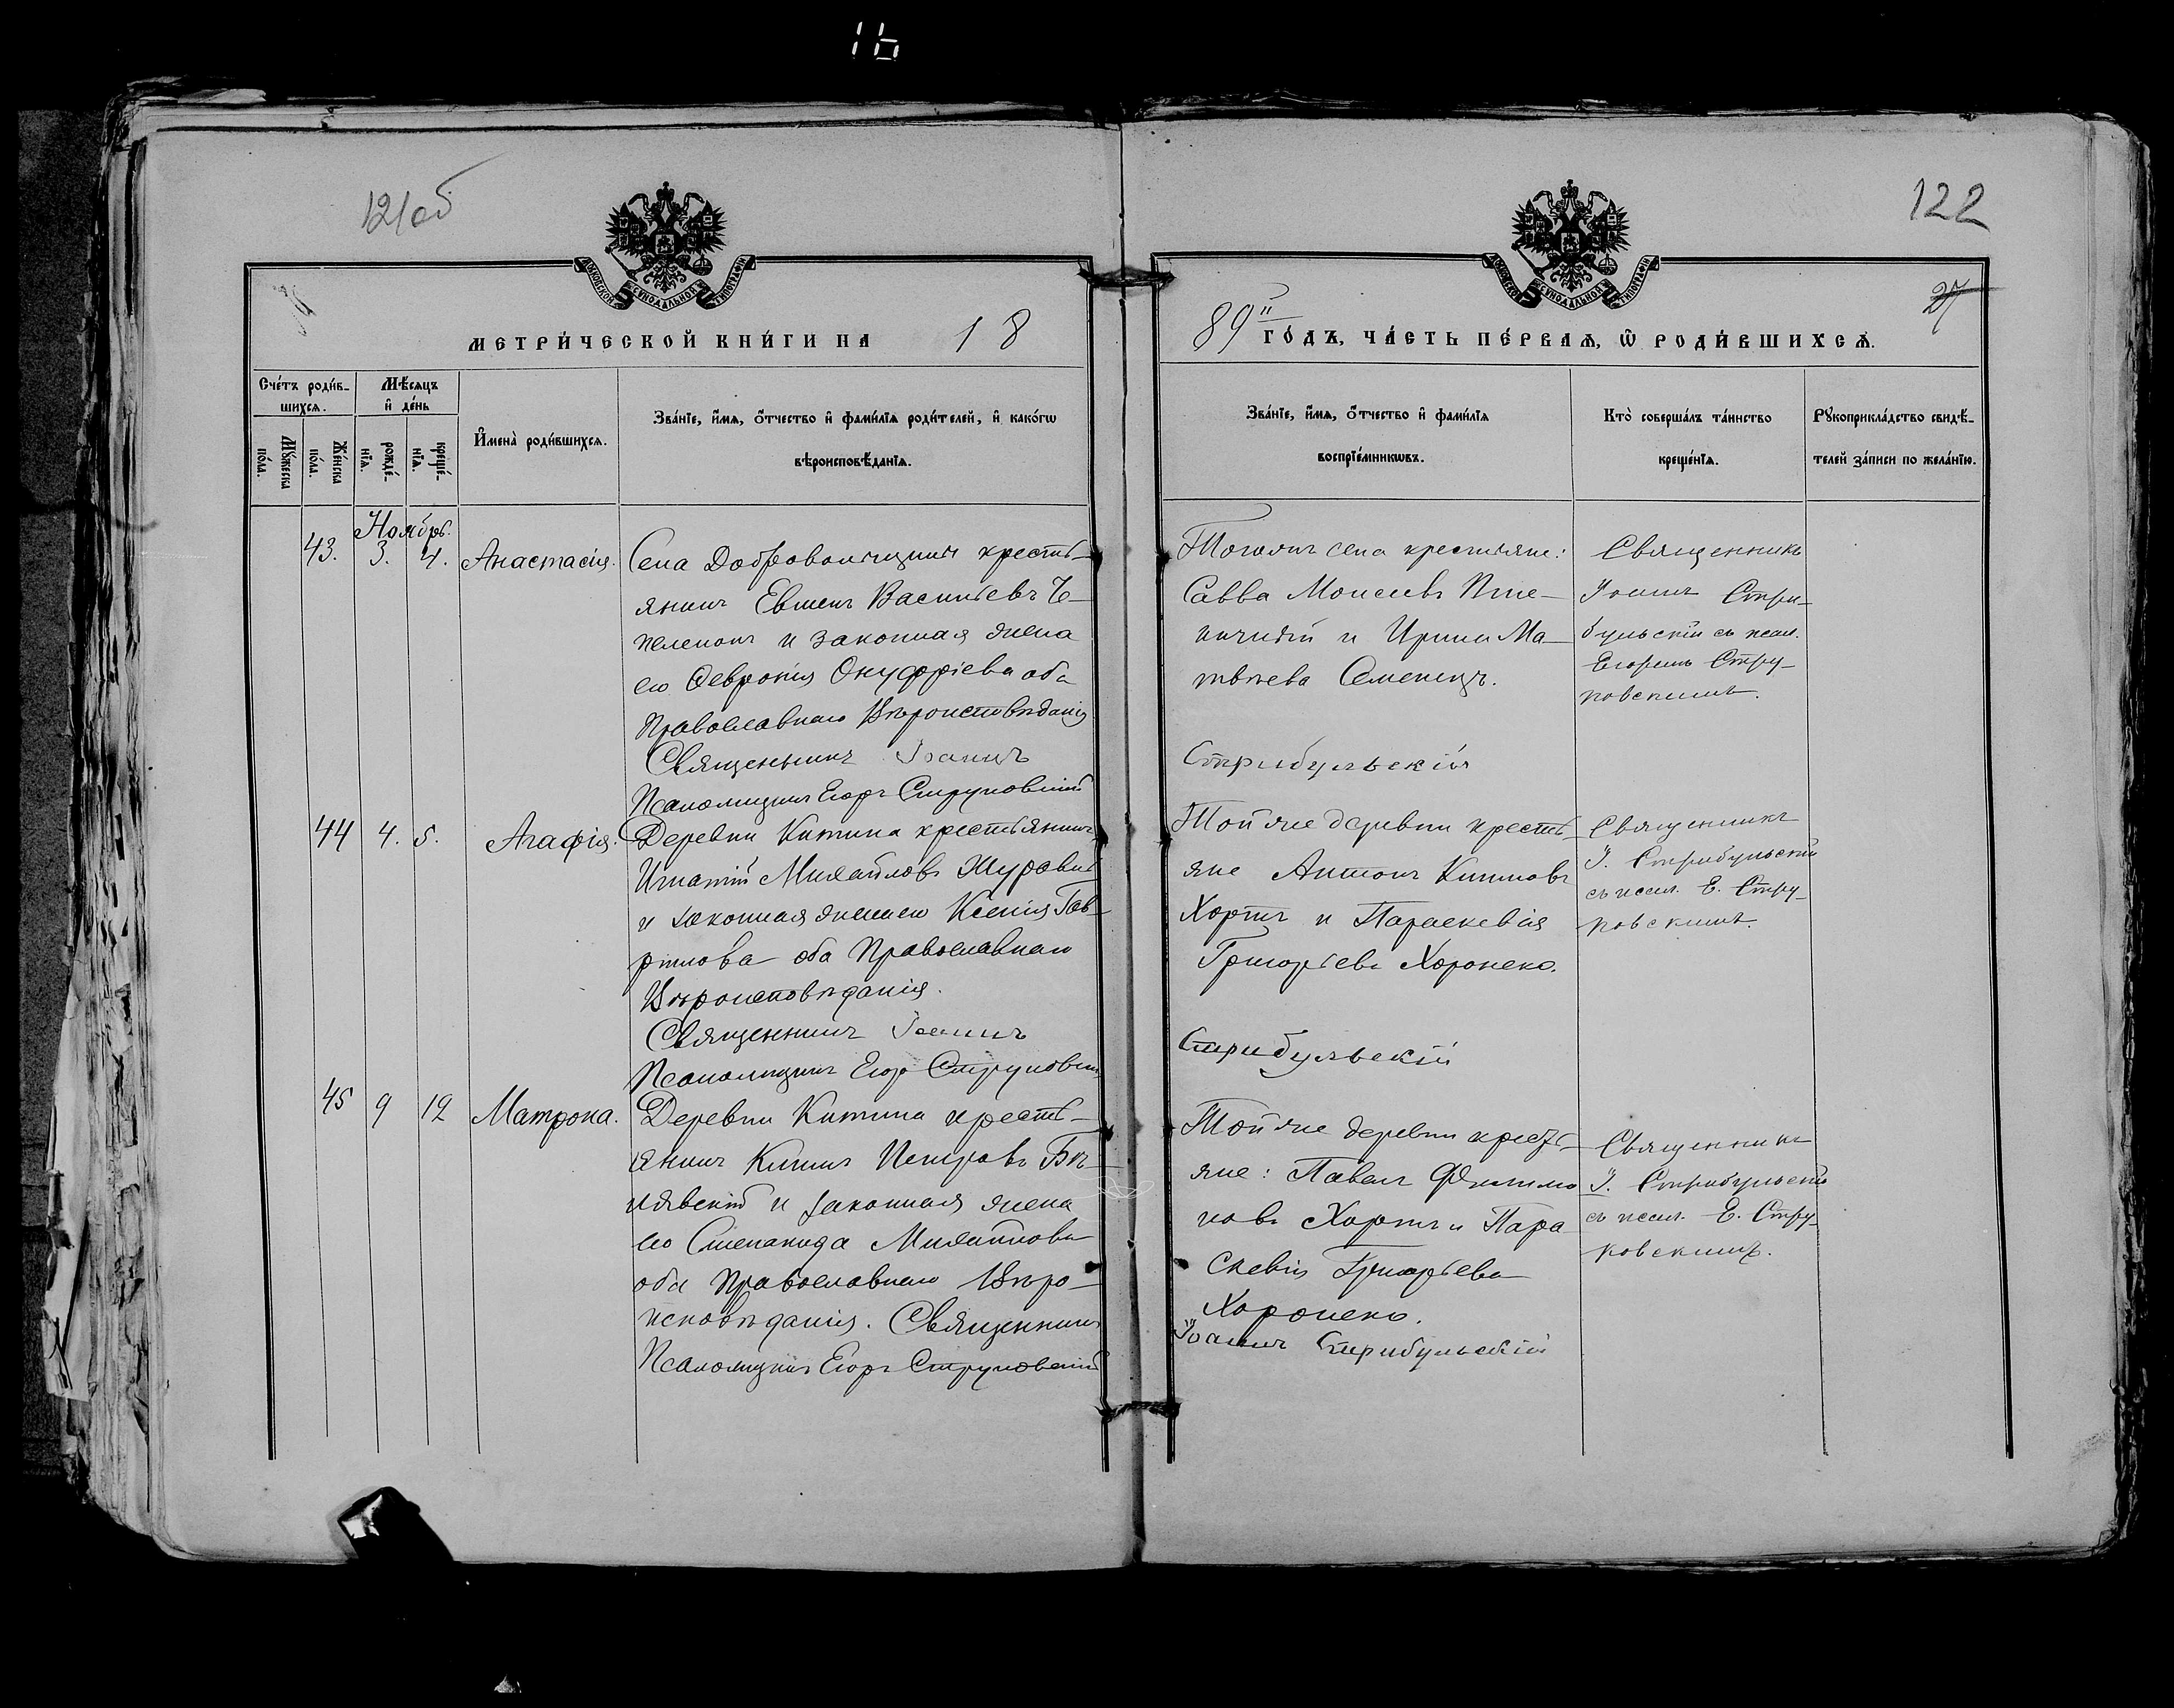 16
121об
122
27
МОСКОВСКОЙ СѴНОДАЛЬНОЙ ТИПОГРАФІИ
МОСКОВСКОЙ СѴНОДАЛЬНОЙ ТИПОГРАФІИ
МЕТРИ́ЧЕСКОЙ КНИ́ГИ НА 18
89й ГО́ДЪ, ЧА́СТЬ ПЕ́РВАѦ, Ѡ҆ РОДИ́ВШИХСѦ.
Сче́тъ роди́в-
шихсѧ.
Мꙋ́жеска по́ла.
Же́нска по́ла.
Мѣ́сѧцъ
и҆ де́нь
рожде́-
нїѧ.
креще́-
нїѧ.
И҆мена̀ роди́вшихсѧ.
Зва́нїе, и҆́мѧ, ѻ҆́тчество и҆ фами́лїѧ роди́телей, и҆ како́гѡ
вѣроисповѣ́данїѧ.
Зва́нїе, и҆́мѧ, ѻ҆́тчество и҆ фами́лїѧ
воспрїе́мникѡвъ.
Кто̀ соверша́лъ та́инство
креще́нїѧ.
Рꙋкоприкла́дство свидѣ́-
телей за́писи по жела́нїю.
Ноябрь.
43. 3. 4. Анастасія. Села Доброволицини кресть-
янинъ Евмен Васильевъ Че-
пелюкъ и законная жена
его Февронія Онуфріева оба
Православнаго Вѣроисповѣданія
Священникъ Іоаннъ
Псаломщикъ Егоръ Струковскій
Тогожъ села крестьяне:
Савва Моисеевъ
и Ирина Ма-
твѣева Семенецъ.
Стрибульскій
Священникъ
Іоаннъ Стри-
бульскій съ псал.
Егоромъ Стру-
ковскимъ.
44 4. 5. Агафія. Деревни Китина крестьянинъ
Игнатій Михайловъ Журавскій
и законная жена его Ксенія Гав-
ріилова оба Православнаго
Вѣроисповѣданія.
Священникъ Іоаннъ
Псаломщикъ Егоръ Струковскій
Той же деревни кресть-
яне Антонъ Климовъ
Хортъ и Параскевія
Григорьева Харонеко.
Стрибульскій
Священникъ
І. Стрибульскій
съ псал. Е. Стру-
ковскимъ.
45 9 12 Матрона. Деревни Китина кресть-
янинъ Климъ Петровъ Бѣ-
лявскій и законная жена
его Степанида Михайлова
оба Православнаго Вѣро-
исповѣданія. Священникъ
Псаломщикъ Егоръ Струковскій
Той же деревни кресть-
яне: Павелъ Филимо
новъ Хортъ и Пара
скевія Григорьева
Харонеко.
Іоаннъ Стрибульскій
Священникъ
І. Стрибульскій
съ псал. Е. Стру-
ковскимъ.